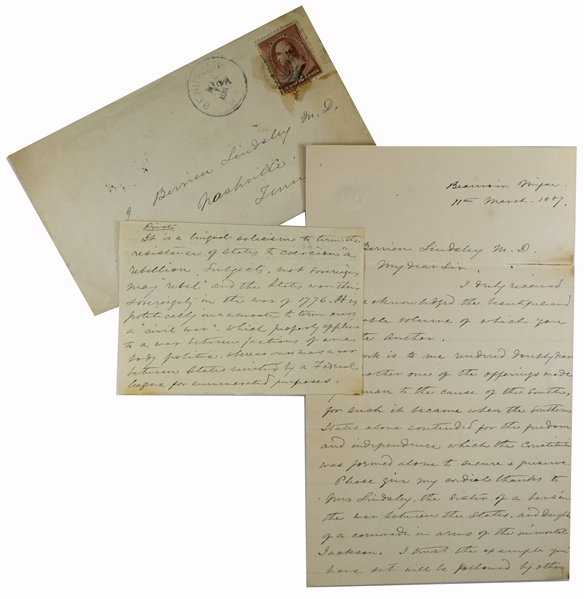 J. Berrien Lindsley M. D.
Nashville
Tenn
Private
It is a lingual solicism to term the
resistance of States to coercion "a
rebellion. Subjects, not sovereigns
may "rebel" and the States won their
sovereignty in the war of 1776. It is
politically inaccurate to term ours
a "civil war" which properly applies
to a war between factions of one
body politic, whereas ours was a war
between States united by a Federal
league for enumerated purposes.
Beauvoir Missi
11th March. 1887.
Berrien Lindsley M. D.
My dear Sir,
I duly received
acknowledged the beautiful and
able volume of which you
the Author.
work is to me rendered doubly dear
another one of the offerings made
man to the cause of the South,
for such it became when the Southern
States alone contended for the freedom
and independence which the Constitution
was formed alone to secure & preserve
Please give my cordial thanks to
Mrs Lindsley, the sister of a hero in
the war between the States, and daughter
of a comrade in arms of the immortal
Jackson. I trust the example you
have set will be followed by other